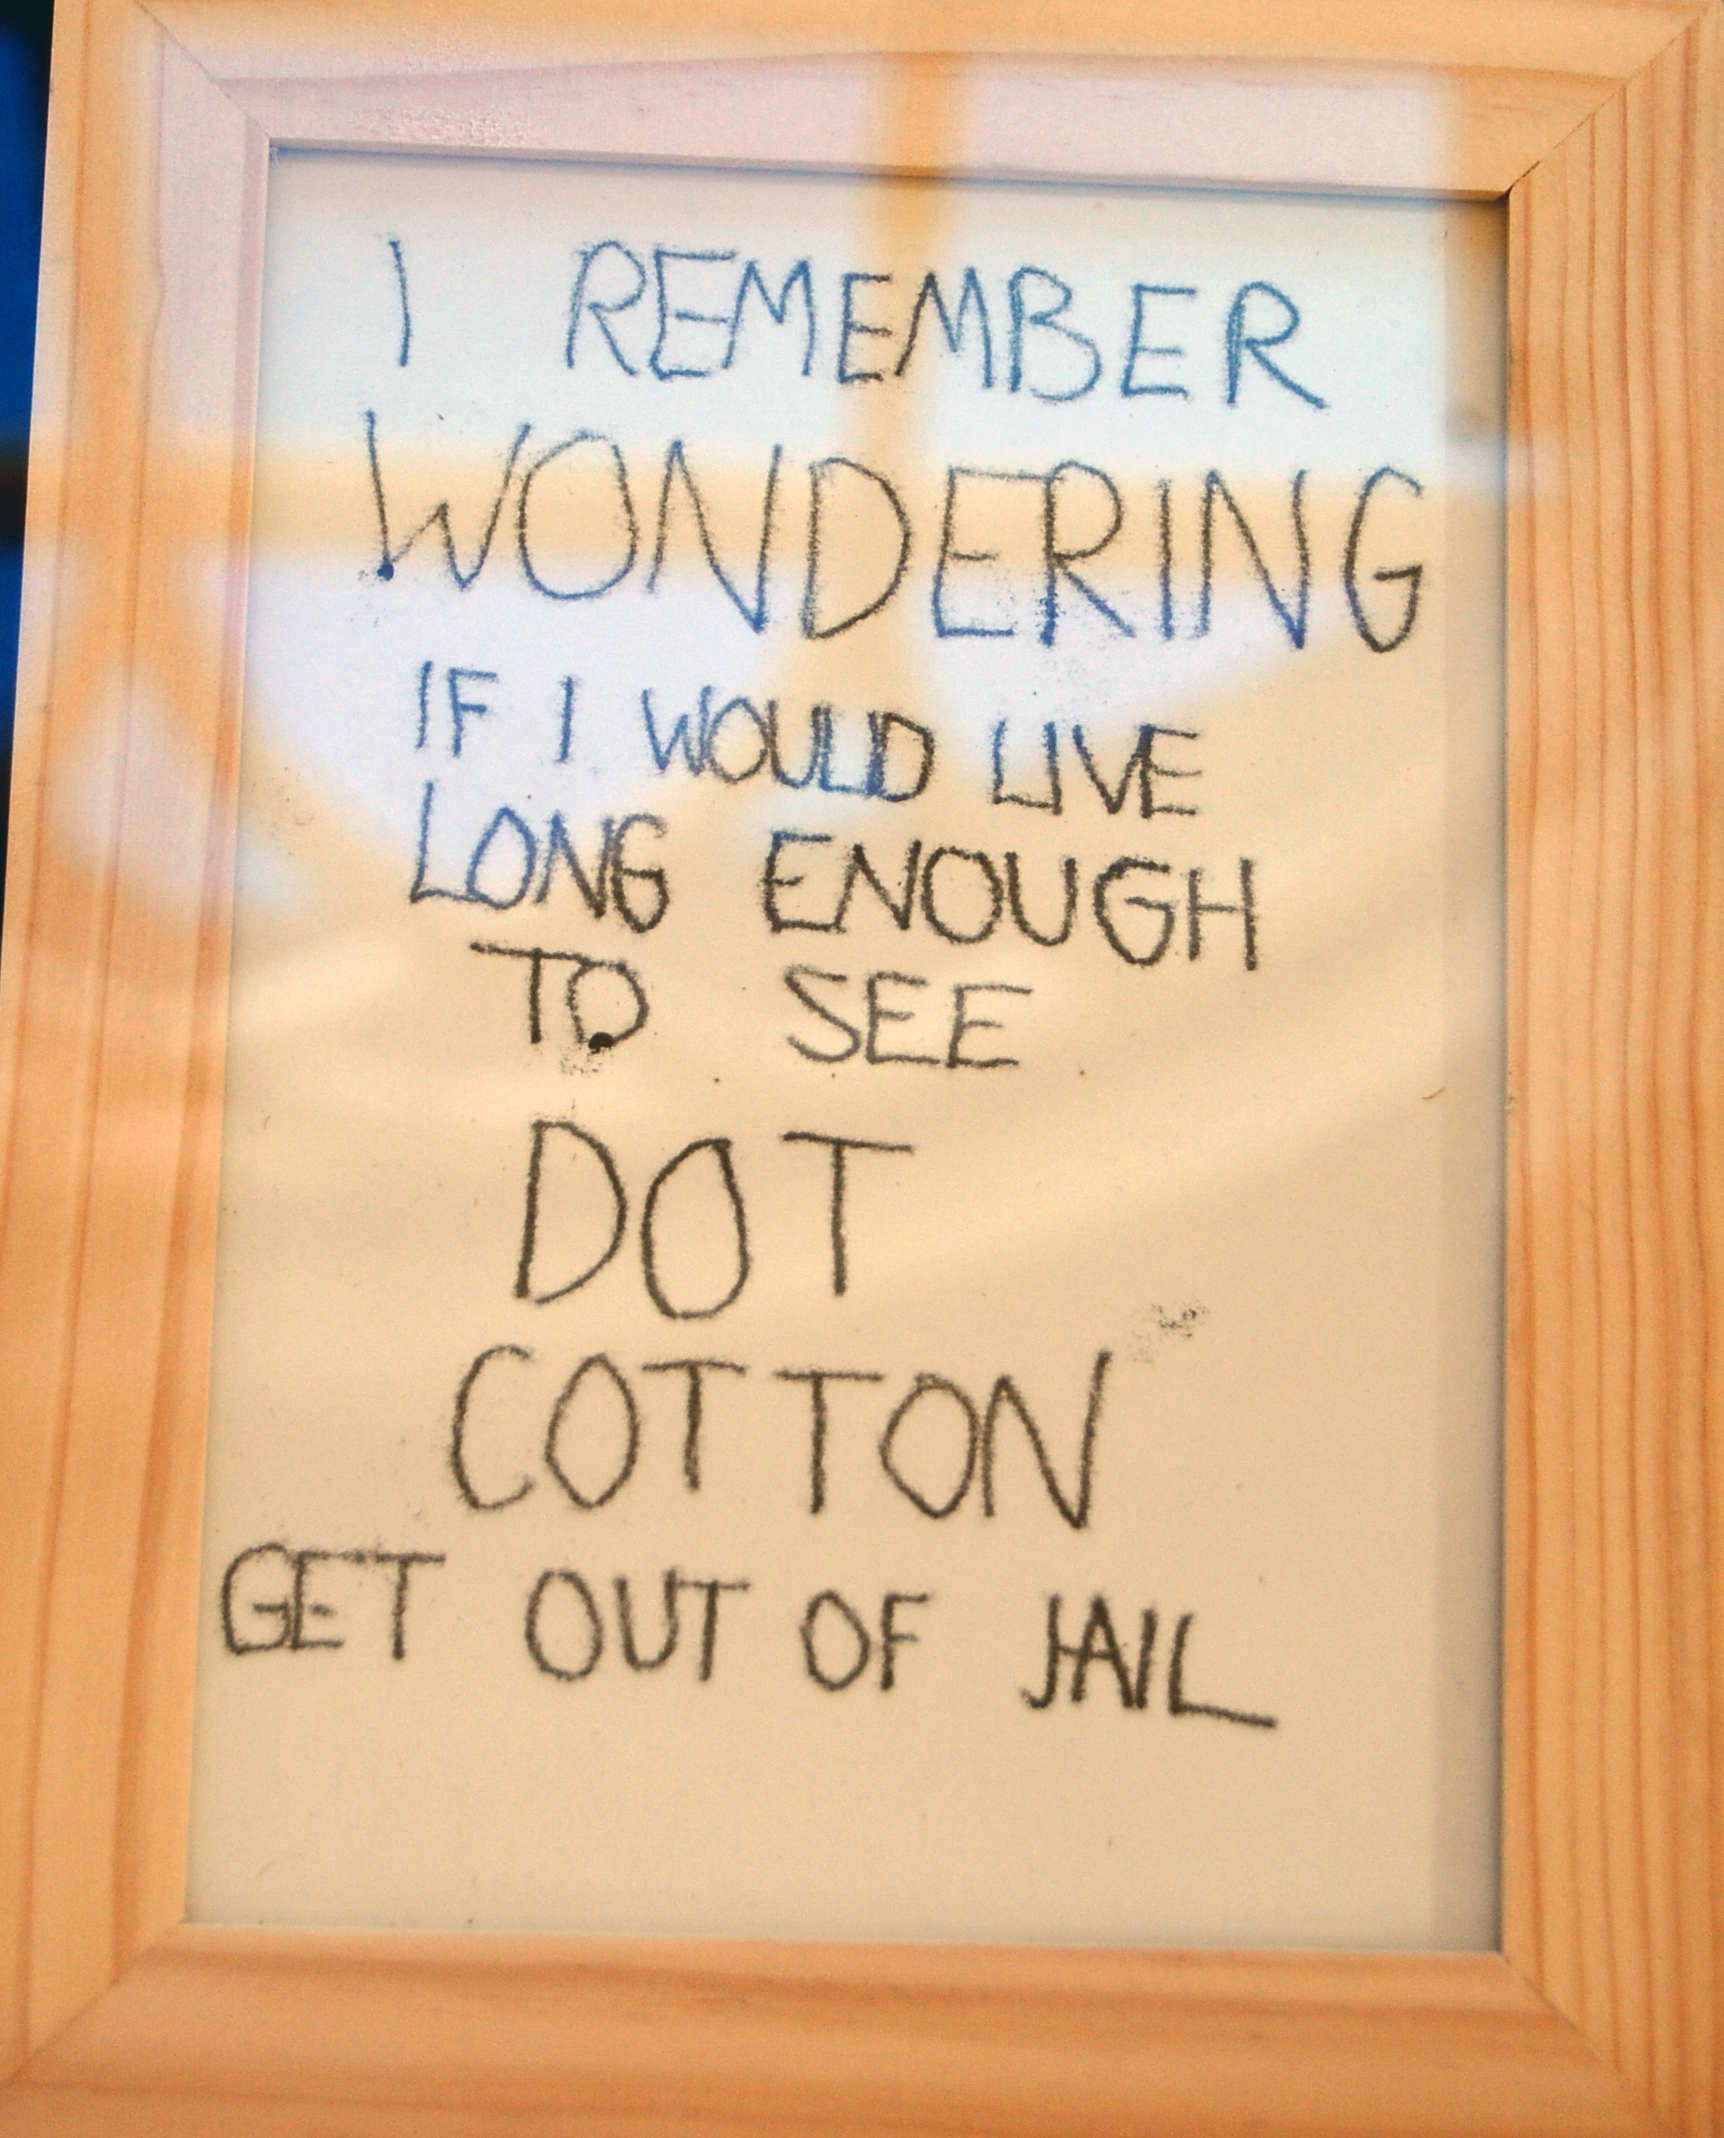 I REMEMBER
WONDERING
IF I WOULD LIVE
LONG ENOUGH
TO SEE
DOT
COTTON
GET OUT OF JAIL